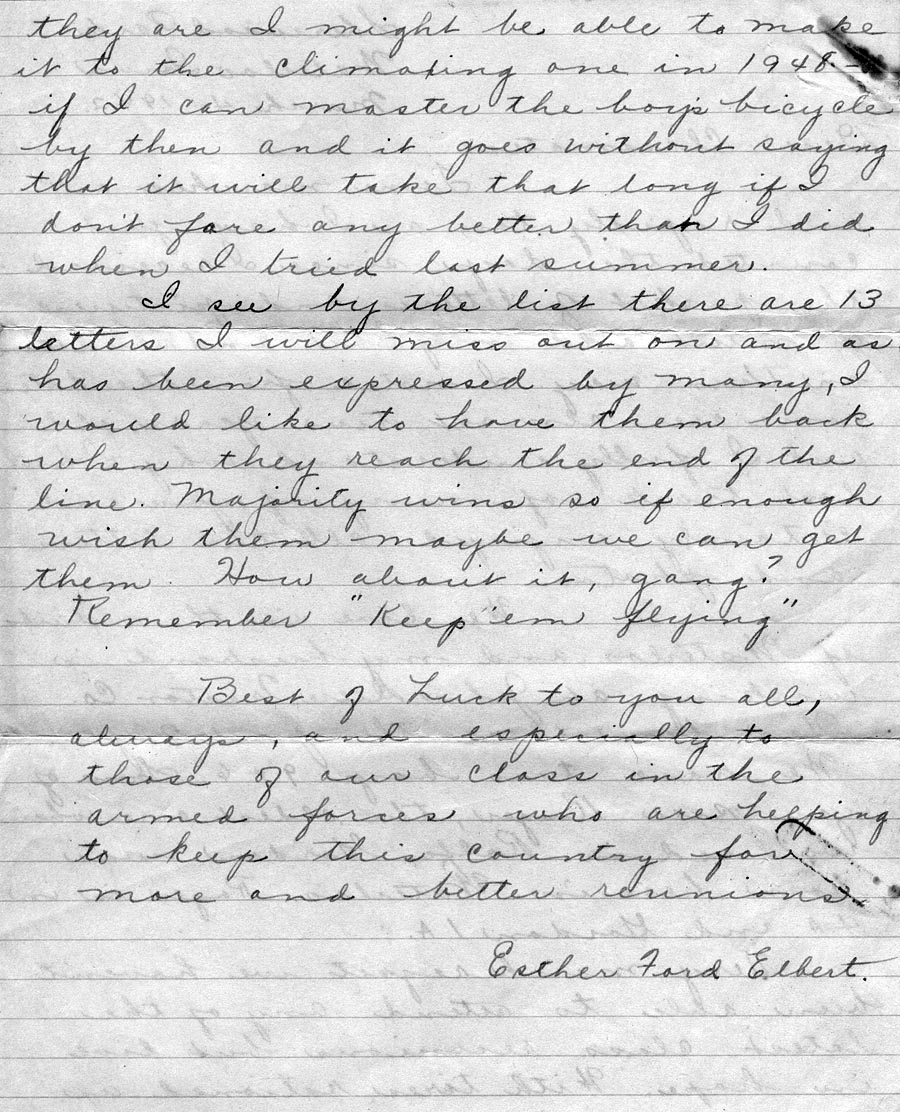 they are I might be able to make
it to the climaxing one in 1948 -
if I can master the boy's bicycle
by then and it goes without saying
that it will take that long if I
don't fare any better than I did
when I tried last summer.
I see by the list there are 13
letters I will miss out on and as
has been expressed by many, I
would like to have them back
when they reach the end of the
line. Majority wins so if enough
wish them maybe we can get
them. How about it, gang?
Remember "Keep 'em flying"
Best of Luck to you all,
always, and especially to
those of our class in the
armed forces who are helping
to keep this country for
more and better reunions.
Esther Ford Elbert.